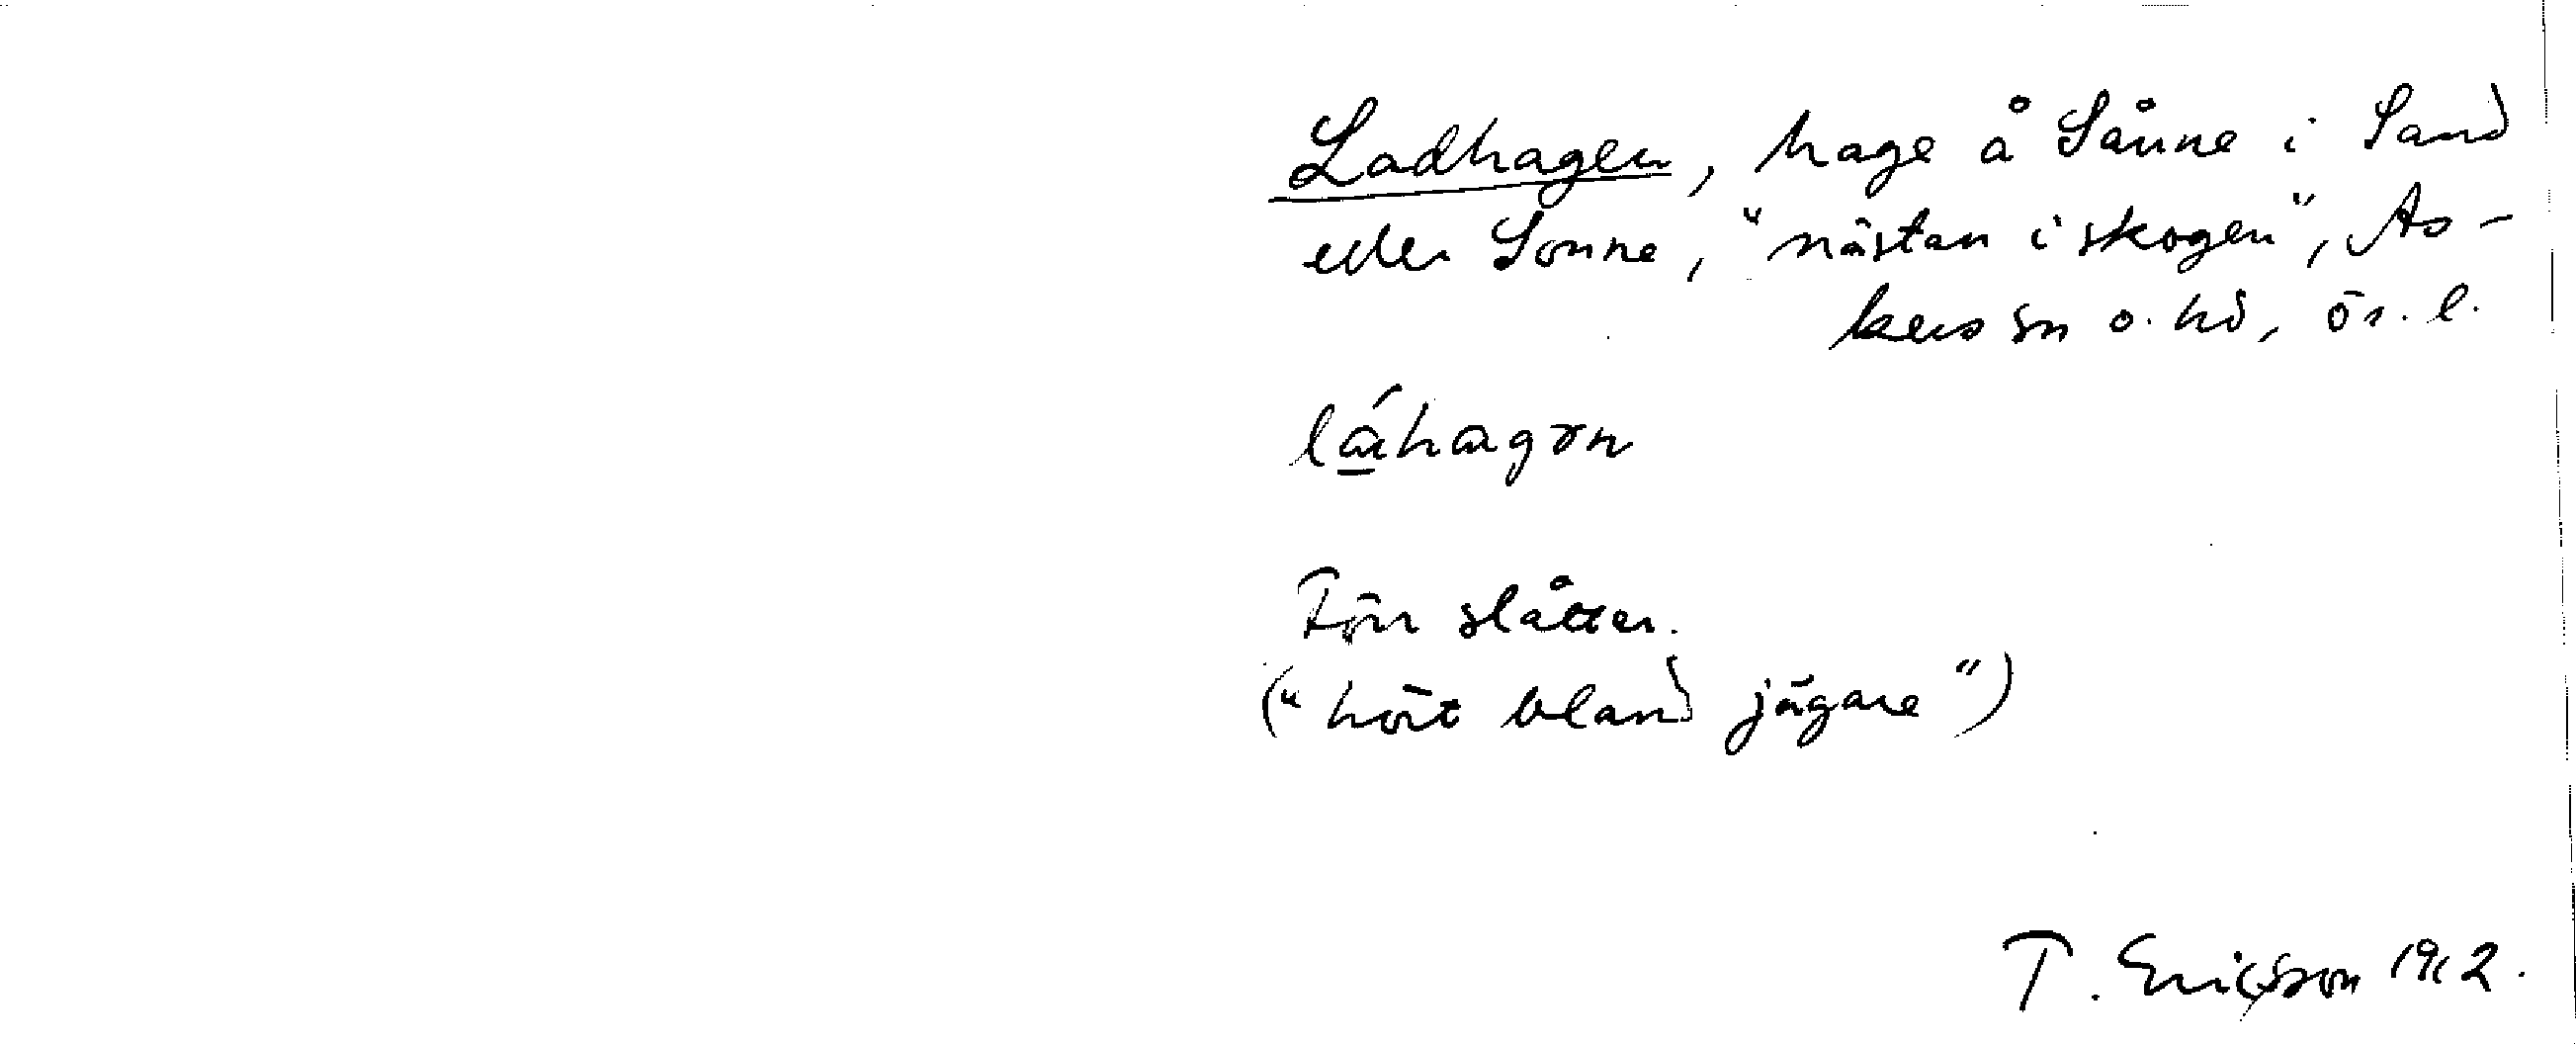 Ladhagen, hage å Sånne i Sand
eller Sonne, "nästan i skogen", As-
kers sn o. hd, ör. l.
láhagən
Förr slåtter.
("hört bland jägare")
T. Ericsson 1912.